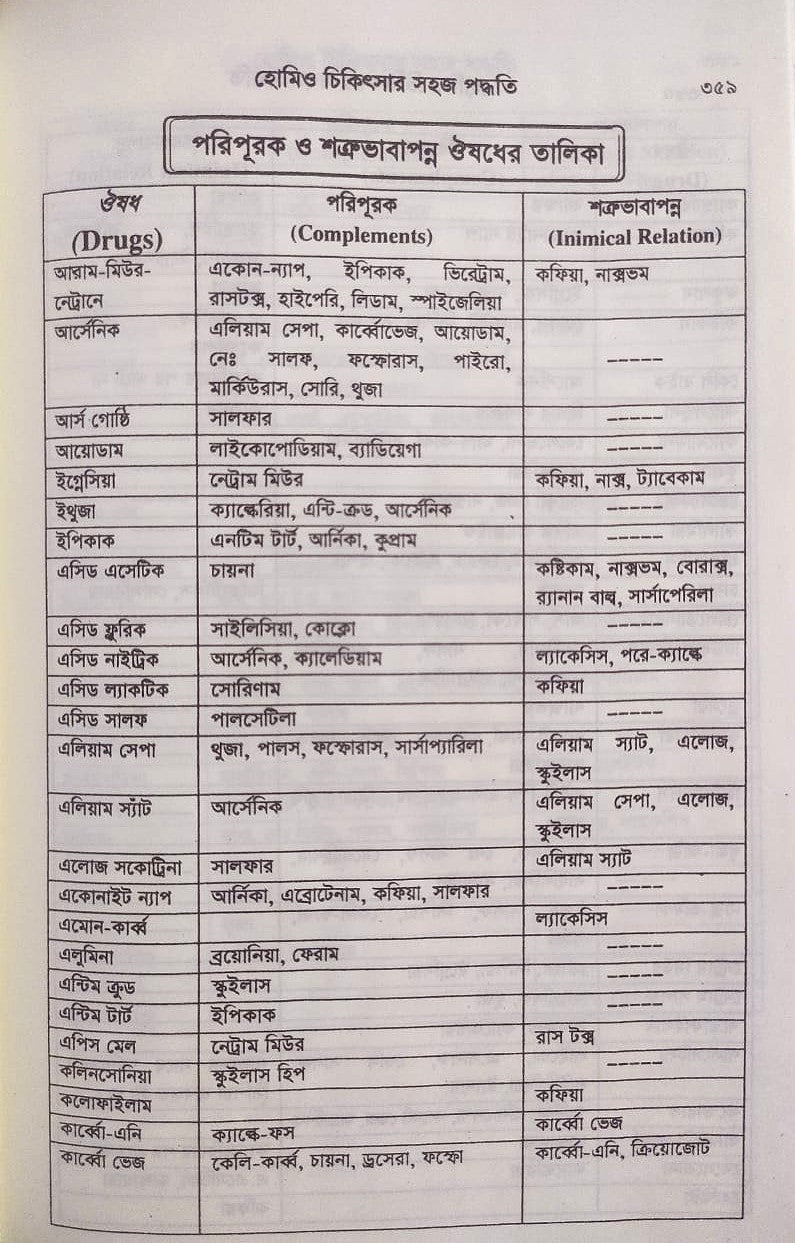 হোমিও চিকিৎসার সহজ পদ্ধতি ৩৫৯
পরিপূরক ও শত্রুভাবাপন্ন ঔষধের তালিকা
ঔষধ পরিপূরক শত্রুভাবাপন্ন
(Drugs) (Complements) (Inimical Relation)
আরাম-মিউর- একোন-ন্যাপ, ইপিকাক, ভিরেট্রাম, কফিয়া, নাক্সভম
নেট্রানে রাসটক্স, হাইপেরি, লিডাম, স্পাইজেলিয়া
আর্সেনিক এলিয়াম সেপা, কার্ব্বোভেজ, আয়োডাম,
নেঃ সালফ, ফস্ফোরাস, পাইরো, -----
মার্কিউরাস, সোরি, থুজা
আর্স গোষ্ঠি সালফার -----
আয়োডাম লাইকোপোডিয়াম, ব্যাডিয়েগা -----
ইগ্নেসিয়া নেট্রাম মিউর কফিয়া, নাক্স, ট্যাবেকাম
ইথুজা ক্যাল্কেরিয়া, এন্টি-ক্রড, আর্সেনিক -----
ইপিকাক এনটিম টার্ট, আর্নিকা, কুপ্রাম -----
এসিড এসেটিক চায়না কষ্টিকাম, নাক্সভম, বোরাক্স,
র‍্যানান বাল্ব, সার্সাপেরিলা
এসিড ফ্লুরিক সাইলিসিয়া, কোক্লো -----
এসিড নাইট্রিক আর্সেনিক, ক্যালেডিয়াম ল্যাকেসিস, পরে-ক্যাল্কে
এসিড ল্যাকটিক সোরিণাম কফিয়া
এসিড সালফ পালসেটিলা -----
এলিয়াম সেপা থুজা, পালস, ফস্ফোরাস, সার্সাপ্যারিলা এলিয়াম স্যাট, এলোজ,
স্কুইলাস
এলিয়াম স্যাঁট আর্সেনিক এলিয়াম সেপা, এলোজ,
স্কুইলাস
এলোজ সকোট্রিনা সালফার এলিয়াম স্যাট
একোনাইট ন্যাপ আর্নিকা, এব্রোটেনাম, কফিয়া, সালফার -----
এমোন-কার্ব্ব ল্যাকেসিস
এলুমিনা ব্রয়োনিয়া, ফেরাম -----
এন্টিম ক্রুড স্কুইলাস -----
এন্টিম টার্ট ইপিকাক -----
এপিস মেল নেট্রাম মিউর রাস টক্স
কলিনসোনিয়া স্কুইলাস হিপ -----
কলোফাইলাম কফিয়া
কার্ব্বো-এনি ক্যাল্কে-ফস কার্ব্বো ভেজ
কার্ব্বো ভেজ কেলি-কার্ব্ব, চায়না, ড্রসেরা, ফস্ফো কার্ব্বো-এনি, ক্রিয়োজোট